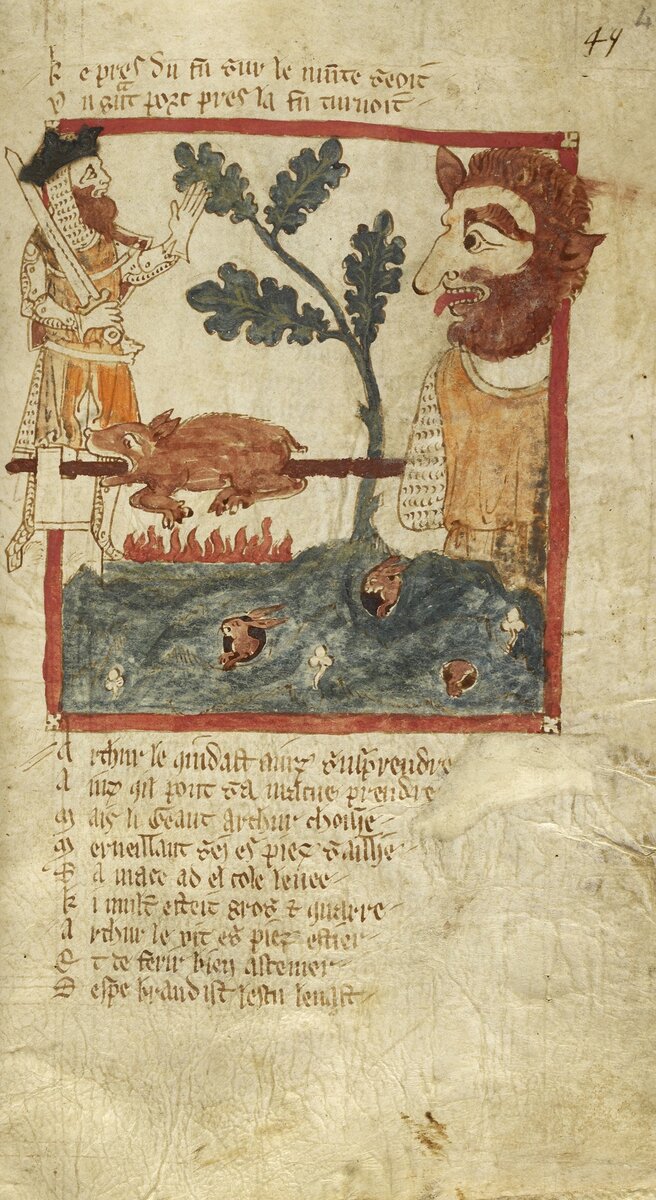 44
4
k e pres du fu sur le munte seoit
U n gnt porc pres la fu turnoit
A rthur le quidast ainz suprendre
A inz qil pout sa macue prendre
M ais li Geant arthur choisie
M erueillant sei es piez saillie
S a mace ad el cole leuee
k i mult esteit gros & quarre
A rthur le vit es piez ester
E t de ferir bien astemer
S espe brandist lescu leuast